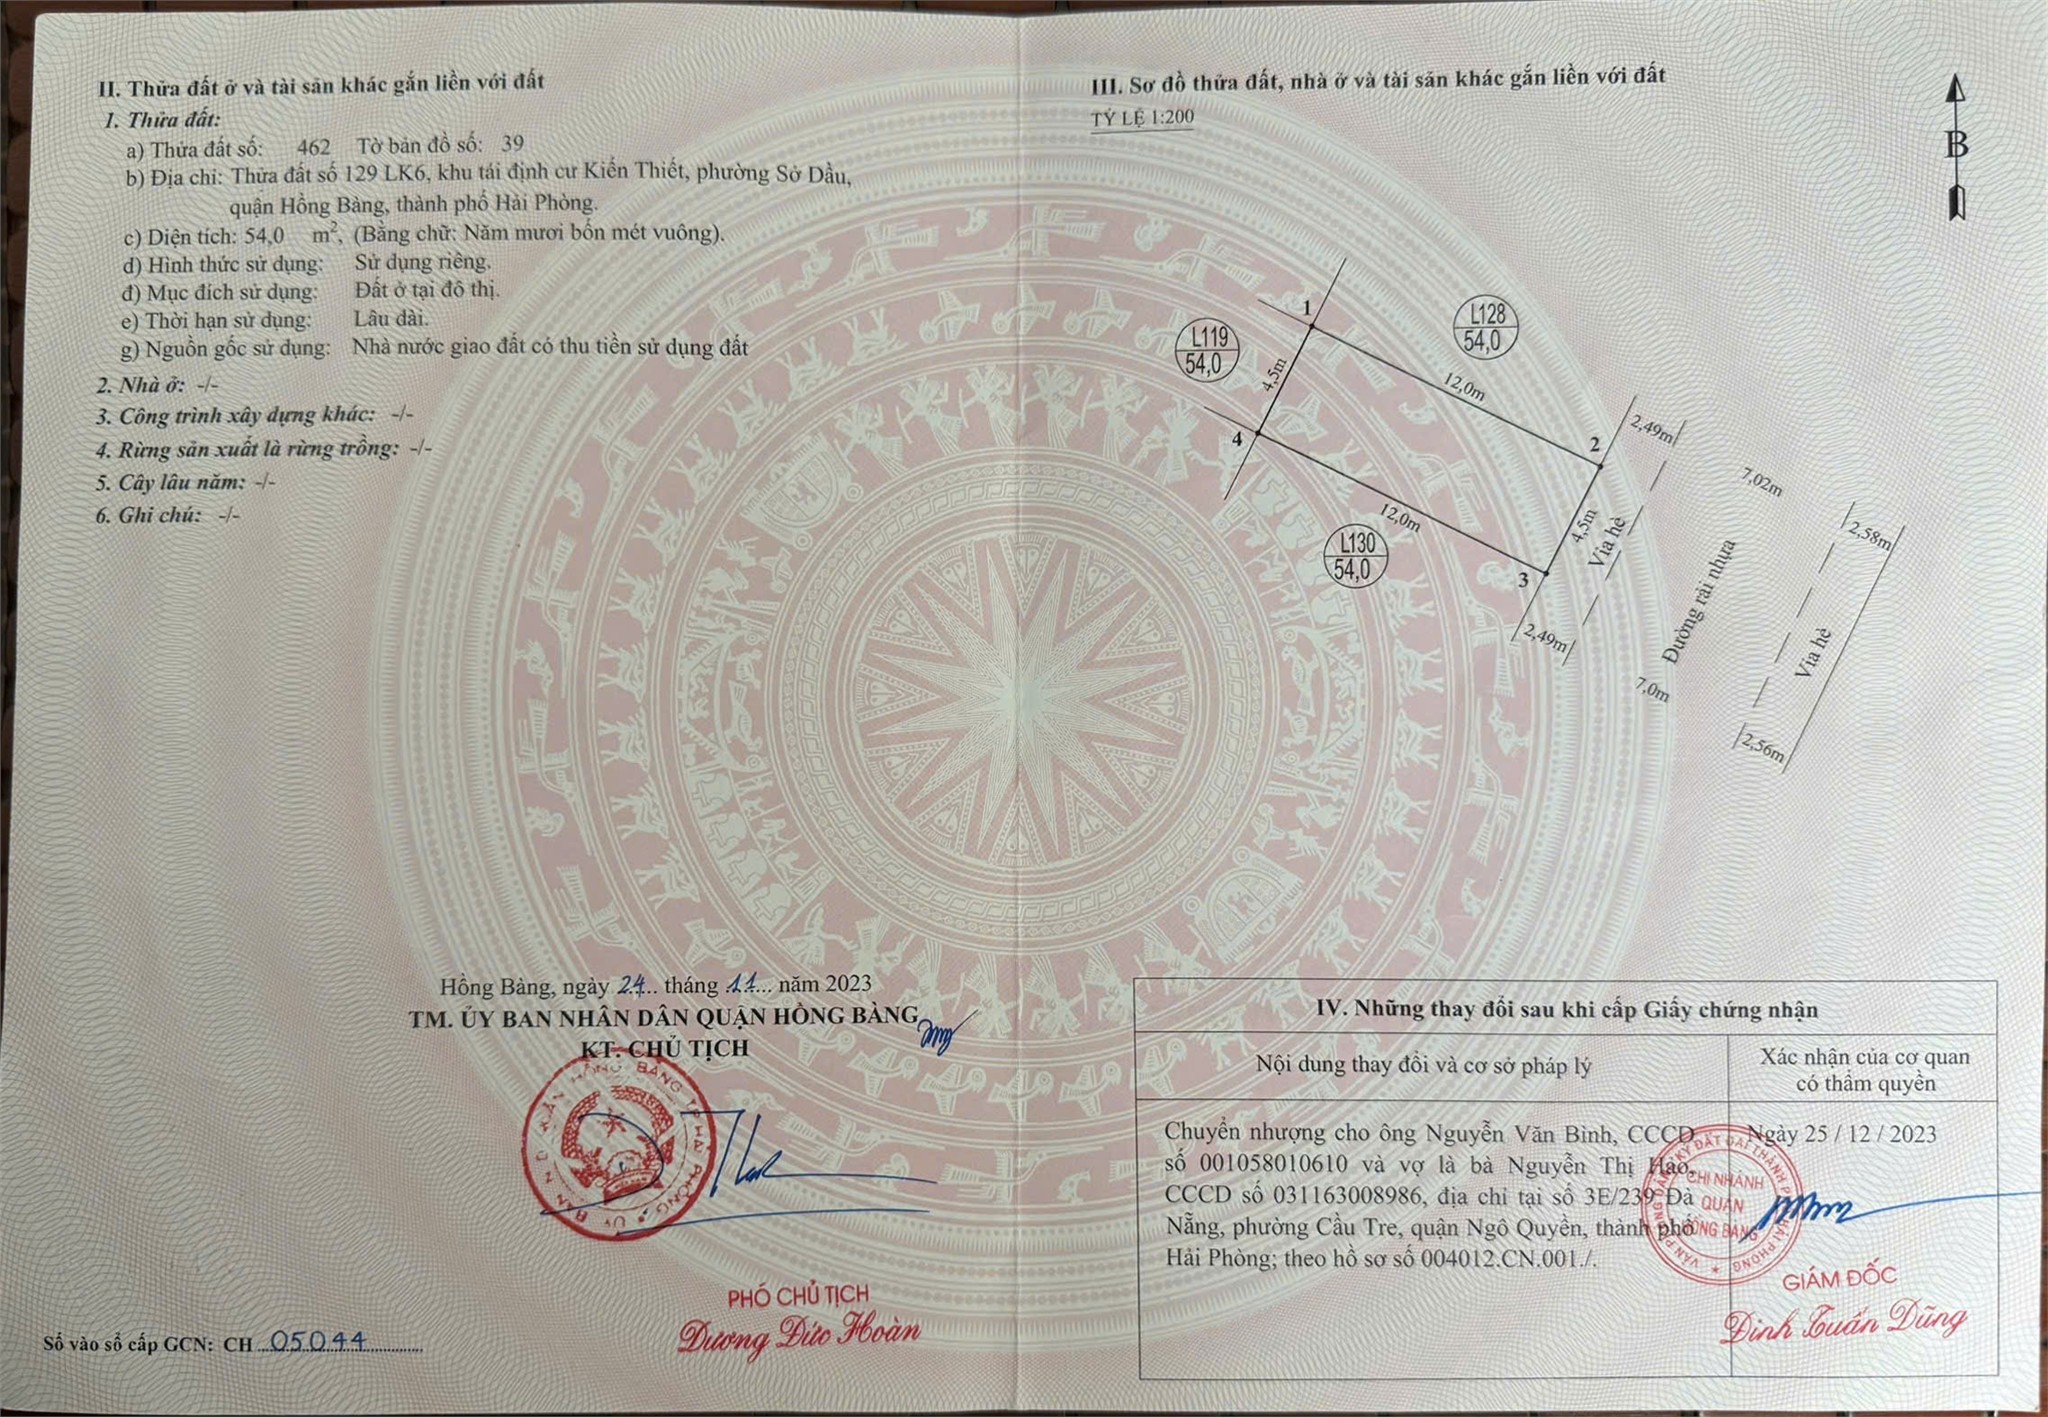 II. Thửa đất ở và tài sản khác gắn liền với đất
1. Thửa đất:
a) Thửa đất số: 462 Tờ bản đồ số: 39
b) Địa chỉ: Thửa đất số 129 LK6, khu tái định cư Kiến Thiết, phường Sở Dầu,
quận Hồng Bàng, thành phố Hải Phòng.
c) Diện tích: 54,0 m², (Bằng chữ: Năm mươi bốn mét vuông).
d) Hình thức sử dụng: Sử dụng riêng.
đ) Mục đích sử dụng: Đất ở tại đô thị.
e) Thời hạn sử dụng: Lâu dài.
g) Nguồn gốc sử dụng: Nhà nước giao đất có thu tiền sử dụng đất
2. Nhà ở: -/-
3. Công trình xây dựng khác: -/-
4. Rừng sản xuất là rừng trồng: -/-
5. Cây lâu năm: -/-
6. Ghi chú: -/-
Hồng Bàng, ngày 24 tháng 11 năm 2023
TM. ỦY BAN NHÂN DÂN QUẬN HỒNG BÀNG
KT. CHỦ TỊCH
PHÓ CHỦ TỊCH
Dương Đức Hoàn
Số vào sổ cấp GCN: CH 05044
III. Sơ đồ thửa đất, nhà ở và tài sản khác gắn liền với đất
TỶ LỆ 1:200
B
1
L128
54,0
L119
54,0
4,5m
12,0m
2
2,49m
4
7,02m
12,0m
4,5m
Vỉa hè
2,58m
L130
54,0
3
Đường rải nhựa
2,49m
Vỉa hè
7,0m
2,56m
IV. Những thay đổi sau khi cấp Giấy chứng nhận
Nội dung thay đổi và cơ sở pháp lý
Xác nhận của cơ quan
có thẩm quyền
Chuyển nhượng cho ông Nguyễn Văn Bình, CCCD
số 001058010610 và vợ là bà Nguyễn Thị Hảo,
CCCD số 031163008986, địa chỉ tại số 3E/239 Đà
Nẵng, phường Cầu Tre, quận Ngô Quyền, thành phố
Hải Phòng; theo hồ sơ số 004012.CN.001./.
Ngày 25 / 12 / 2023
CHI NHÁNH
QUẬN
HỒNG BÀNG
GIÁM ĐỐC
Đinh Tuấn Dũng